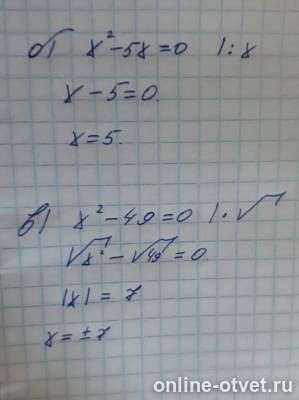 б) x² - 5x = 0 | : x
x - 5 = 0.
x = 5.
в) x² - 49 = 0 | · √
√x² - √49 = 0
|x| = 7
x = ±7
online-otvet.ru